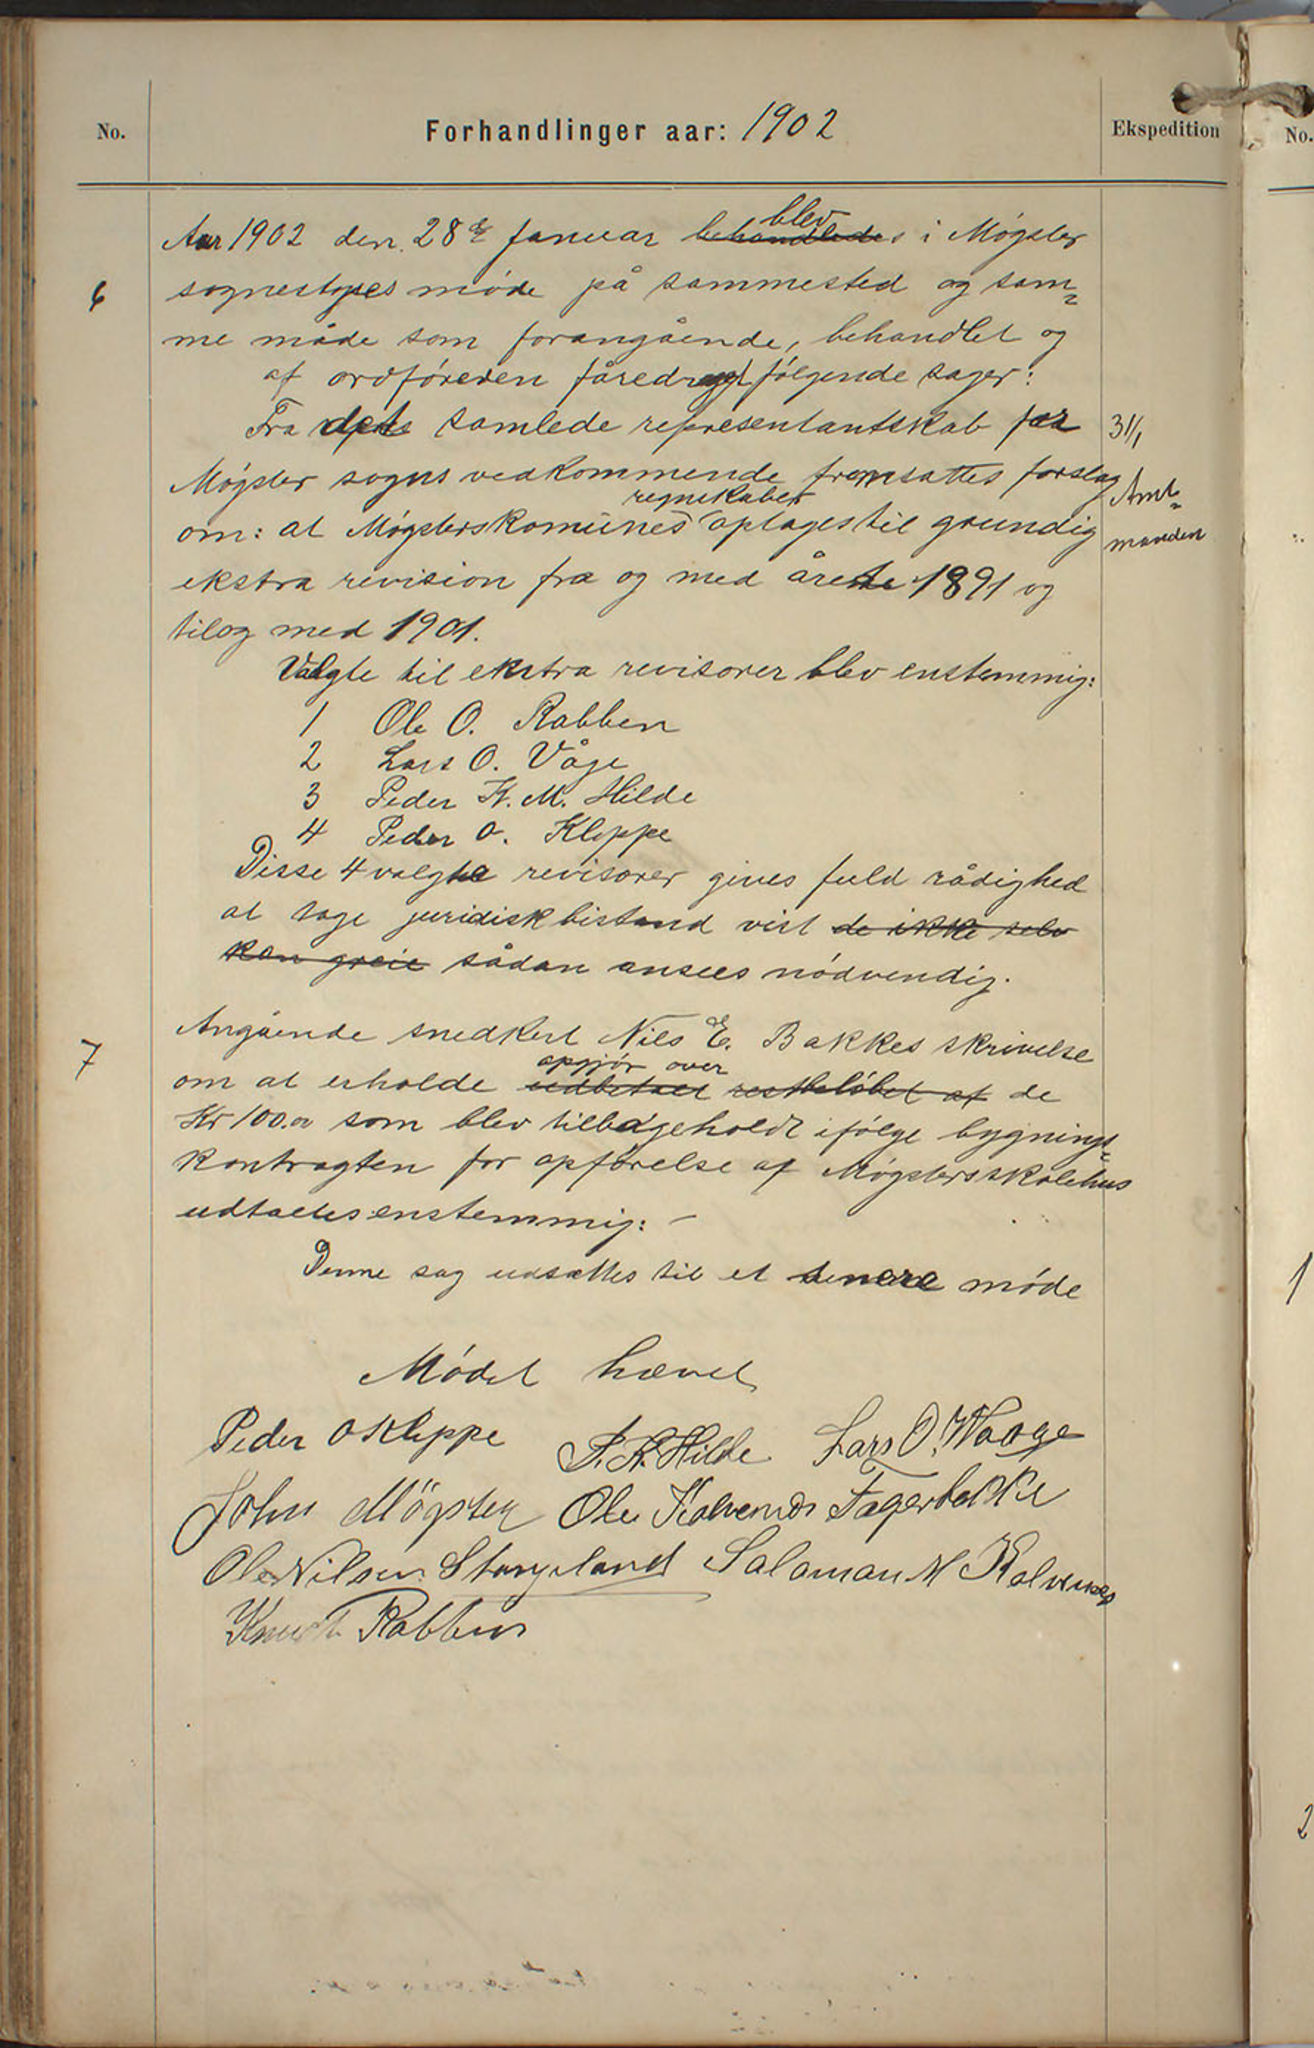 No.
Forhandlinger aar: 1902
Ekspedition
No.
blev
Aar 1902 den 28de Januar behandledes i Møgster
6
sognestyres møde på sammested og sam=
me måde som forangående, behandlet og
af ordføreren fåredraget følgende sager:
Fra dets samlede representantskab for
31/1
Møgster sogns vedkommende fremsattes forslag
Amt=
regnskaber
om: at Møgsterskomunes optages til grundig
manden
ekstra revision fra og med årene 1891 og
tilog med 1901.
Valgte til ekstra revisorer blev enstemmig:
1 Ole O. Rabben
2 Lars O. Våge
3 Peder K. M. Hilde
4 Peder O. Kleppe
Disse 4 valgte revisorer gives fuld rådighed
at tage juridisk bistand vist de ikke selv
kan greie sådan ansees nødvendig.
Angående snedkert Nils E. Bakkes skrivelse
7
opgjør over
om at erholde udbetalt restbeløbet af de
Kr 100.00 som blev tilbageholdt ifølge bygnings=
kontragten for opførelse af Møgstersskolehus
udtaltes enstemmig: -
Denne sag udsættes til et senere møde
1
Mødet hævet
Peder O Kleppe P. K. Hilde Lars O. Waage
John Møgster Ole Kalvenes Fagerbakke
Ole Nilsen Storeland Salaman M Kalvenes
Knudt Rabben
2